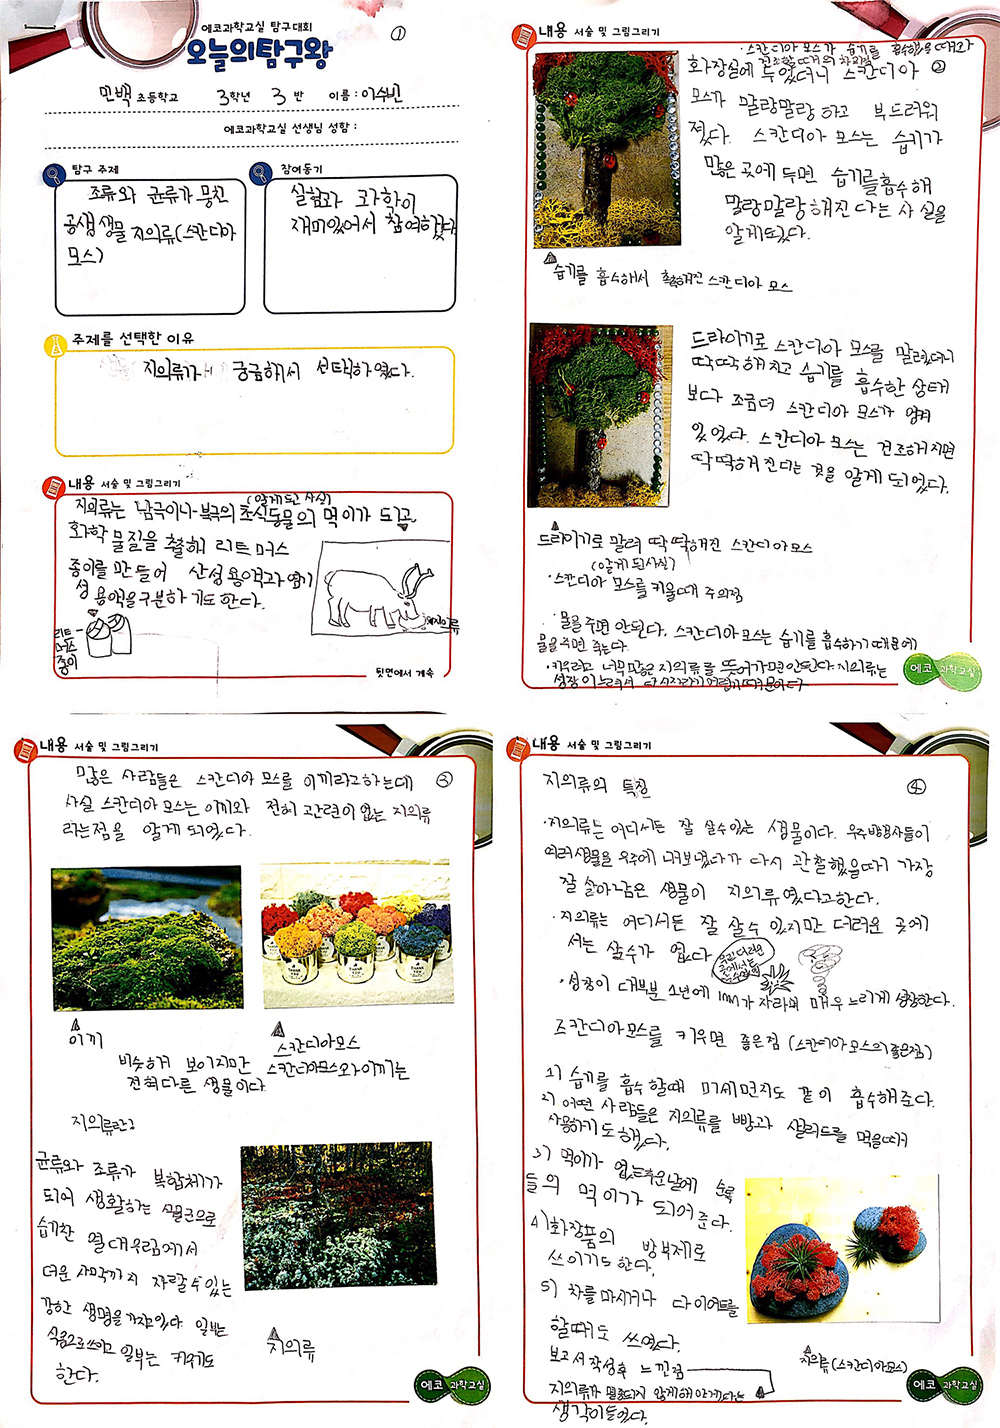 에코과학교실 탐구대회
①
오늘의탐구왕
민백 초등학교 3학년 3반 이름 : 이수빈
에코과학교실 선생님 성함 :
탐구 주제
조류와 균류가 뭉친
공생 생물 지의류(스칸디아
모스)
참여동기
실험과 과학이
재미있어서 참여하였다
주제를 선택한 이유
지의류가 궁금해서 선택하였다.
내용 서술 및 그림그리기
(알게 된 사실)
지의류는 남극이나 북극의 초식동물의 먹이가 되고
화학 물질을 추출해 리트머스
종이를 만들어 산성용액과 염기
성 용액을 구분하기도 한다.
리트
머스
종이
지의류
뒷면에서 계속
내용 서술 및 그림그리기
·스칸디아 모스가 습기를 흡수했을 때와
건조할 때의 차이점
②
화장실에 두었더니 스칸디아
모스가 말랑말랑하고 부드러워
졌다. 스칸디아 모스는 습기가
많은 곳에 두면 습기를 흡수해
말랑말랑해진다는 사실을
알게되었다.
습기를 흡수해서 촉촉해진 스칸디아 모스
드라이기로 스칸디아 모스를 말렸더니
딱딱해지고 습기를 흡수한 상태
보다 조금더 스칸디아 모스가 엉켜
있었다. 스칸디아 모스는 건조해지면
딱딱해진다는 것을 알게 되었다.
드라이기로 말려 딱딱해진 스칸디아 모스
(알게 된사실)
·스칸디아 모스를 키울때 주의점
·물을 주면 안된다. 스칸디아 모스는 습기를 흡수하기 때문에
물을 주면 죽는다.
·키우려고 너무 많은 지의류를 뜯어가면 안된다 지의류는
성장이 느려서 다시 자라기 어렵기 때문이다
에코 과학교실
내용 서술 및 그림그리기
③
많은 사람들은 스칸디아 모스를 이끼라고하는데
사실 스칸디아 모스는 이끼와 전혀 관련이 없는 지의류
라는점을 알게 되었다.
이끼
스칸디아모스
비슷하게 보이지만 스칸디아모스와 이끼는
전혀 다른 생물이다.
지의류란?
균류와 조류가 복합체가
되어 생활하는 식물군으로
습기찬 열대우림에서
더운 사막까지 자랄 수 있는
강한 생명을 가지고 있다 일부는
식용으로쓰이고 일부는 키우기도
한다.
지의류
에코 과학교실
내용 서술 및 그림그리기
지의류의 특징
④
·지의류는 어디서든 잘 살수있는 생물이다. 우주비행사들이
여러생물을 우주에 내보냈다가 다시 관찰했을때 가장
잘 살아남은 생물이 지의류였다고한다.
·지의류는 어디서든 잘 살수 있지만 더러운 곳에
서는 살수가 없다
·성장이 대부분 1년에 1mm가 자라며 매우 느리게 성장한다.
스칸디아모스를 키우면 좋은점 (스칸디아모스의 좋은점)
1) 습기를 흡수 할때 미세먼지도 같이 흡수해준다.
2) 어떤 사람들은 지의류를 빵과 샐러드를 먹을때
사용하기도 했다.
3) 먹이가 없는 추운날에 순록
들의 먹이가 되어준다.
4) 화장품의 방부제로
쓰이기도 한다.
5) 차를 마시거나 다이어트를
할때도 쓰였다.
지의류 (스칸디아모스)
보고서 작성후 느낀점
지의류가 멸종되지 않게해야겠다는
생각이 들었다.
에코 과학교실